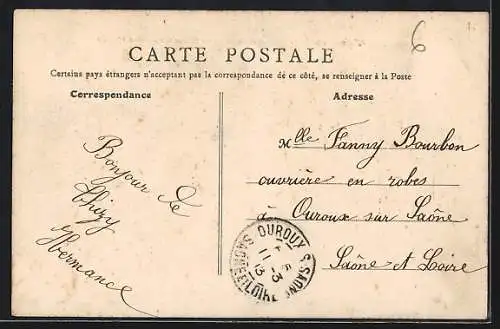 6
CARTE POSTALE
Certains pays étrangers n'acceptant pas la correspondance de ce côté, se renseigner à la Poste
Correspondance
Adresse
Bonjour de
Thizy
Hermance
Mlle Fanny Bourbon
ouvrière en robes
à Ouroux sur Saône
Saône et Loire
OUROUX S SAONE
SAONE-ET-LOIRE